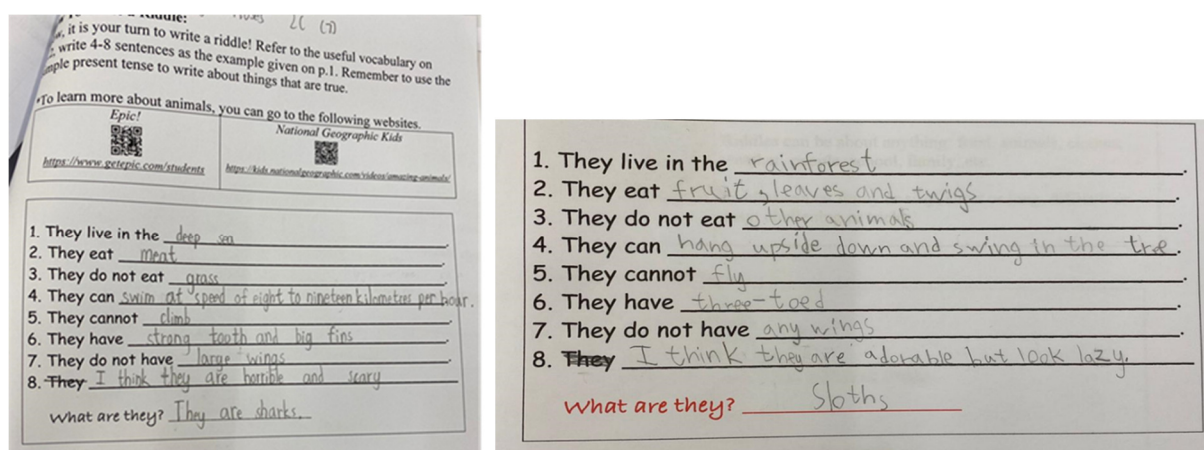 Riddle:
26 (7)
, it is your turn to write a riddle! Refer to the useful vocabulary on
write 4-8 sentences as the example given on p.1. Remember to use the
simple present tense to write about things that are true.
*To learn more about animals, you can go to the following websites.
Epic!
https://www.getepic.com/students
National Geographic Kids
https://kids.nationalgeographic.com/videos/amazing-animals/
1. They live in the deep sea.
2. They eat meat.
3. They do not eat grass.
4. They can swim at speed of eight to nineteen kilometres per hour.
5. They cannot climb.
6. They have strong tooth and big fins.
7. They do not have large wings.
8. They I think they are horrible and scary
What are they? They are sharks.
1. They live in the rainforest.
2. They eat fruit, leaves and twigs.
3. They do not eat other animals.
4. They can hang upside down and swing in the tree.
5. They cannot fly.
6. They have three-toed.
7. They do not have any wings.
8. They I think they are adorable but look lazy.
What are they? Sloths